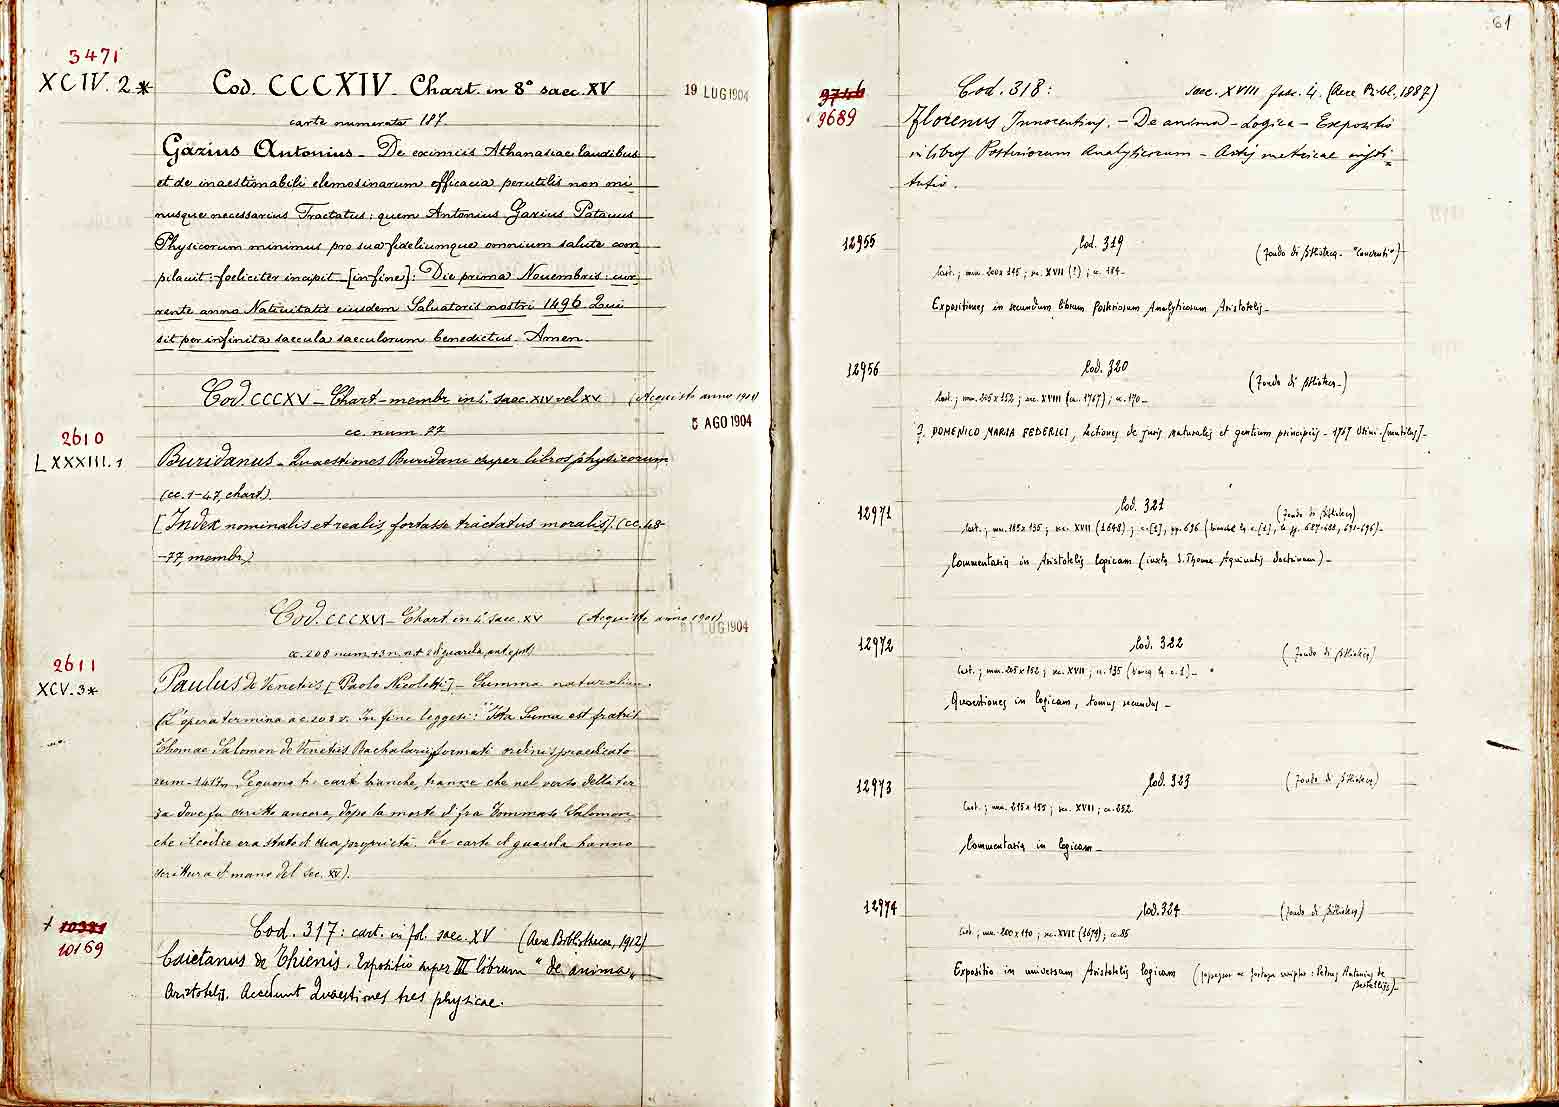 3471
XCIV. 2*
Cod. CCCXIV. Chart. in 8° saec. XV
19 LUG 1904
carte numerate 187.
Gazius Antonius - De eximiis Athanasiae laudibus
et de inaestimabili elemosinarum efficacia perutilis non mi
nusque necessarius Tractatus: quem Antonius Gazius Patauus
Physicorum minimus pro sua fideliumque omnium salute com
pilauit: foeliciter incipit - [in fine]: Die prima Nouembris: cur
rente anno Natiuitatis eiusdem Saluatoris nostri 1496. Qui
sit per infinita saecula saeculorum benedictus. Amen.
Cod. CCCXV - Chart-membr in 4° saec. XIV vel XV (Acquisto anno 1901)
5 AGO 1904
cc. num 77
2610
LXXXIII. 1
Buridanus - Quaestiones Buridani super libros physicorum
(cc. 1-47, chart).
[Index nominalis et realis, fortasse tractatus moralis]. (cc. 48-
-77, membr.)
Cod. CCCXVI - Chart. in 4° saec. XV (Acquisto anno 1901)
LUG 1904
c. 208 num. + 3 n. n. + 2 di guardia, ant. e post.
2611
XCV. 3*
Paulus de Venetiis [Paolo Nicoletti] - Summa naturalium.
(L'opera termina a c. 208 v. In fine leggesi: "Ista Suma est fratris
Thomae Salomon de Venetiis Bachalarii formati ordinis praedicato
rum - 1417". Seguono tre carte bianche, tranne che nel verso della ter
za dove fu scritto ancora, dopo la morte di fra Tommaso Salomon,
che il codice era stato di sua proprietà. Le carte di guardia hanno
scrittura di mano del sec. XV).
10169
Cod. 317: cart. in fol. saec. XV (Aere Bibliothecae, 1912)
Caietanus de Thienis. Expositio super III librum "de anima"
Aristotelis. Accedunt Quaestiones tres physicae.
61
9746
9689
Cod. 318: saec. XVIII fasc. 4. (Aere Bibl., 1887)
Florenus Innocentius. - De anima - Logica - Expositio
in libros Posteriorum Analyticorum - Artis metricae insti=
tutio.
12955
Cod. 319 (Fondo di Biblioteca - "Conventi")
Cart.; mm. 200x145; sec. XVII (?); c. 184-
Expositiones in secundum librum Posteriorum Analyticorum Aristotelis-
12956
Cod. 320 (Fondo di Biblioteca-)
Cart.; mm. 205x152; sec. XVIII (ca. 1767); c. 170-
F. DOMENICO MARIA FEDERICI, Lectiones de juris naturalis et gentium principiis - 1767 Utini - [mutilus]-
12971
Cod. 321 (Fondo di Biblioteca)
Cart.; mm. 185x135; sec. XVII (1648); c. [1], pp. 696 (bianche la c. [1], le pp. 687-688, 691-696)-
Commentaria in Aristotelis logicam (iuxta S. Thomae Aquinatis doctrinam)-
12972
Cod. 322 (Fondo di Biblioteca)
Cart.; mm. 205x152; sec. XVII; c. 135 (bianca la c. 1)-
Quaestiones in logicam, tomus secundus-
12973
Cod. 323 (Fondo di Biblioteca)
Cart.; mm. 215x155; sec. XVII; c. 252
Commentaria in logicam-
12974
Cod. 324 (Fondo di Biblioteca)
Cart.; mm. 200x140; sec. XVII (1679); c. 85
Expositio in universam Aristotelis logicam ( ac fortasse scriptor: Petrus Antonius de